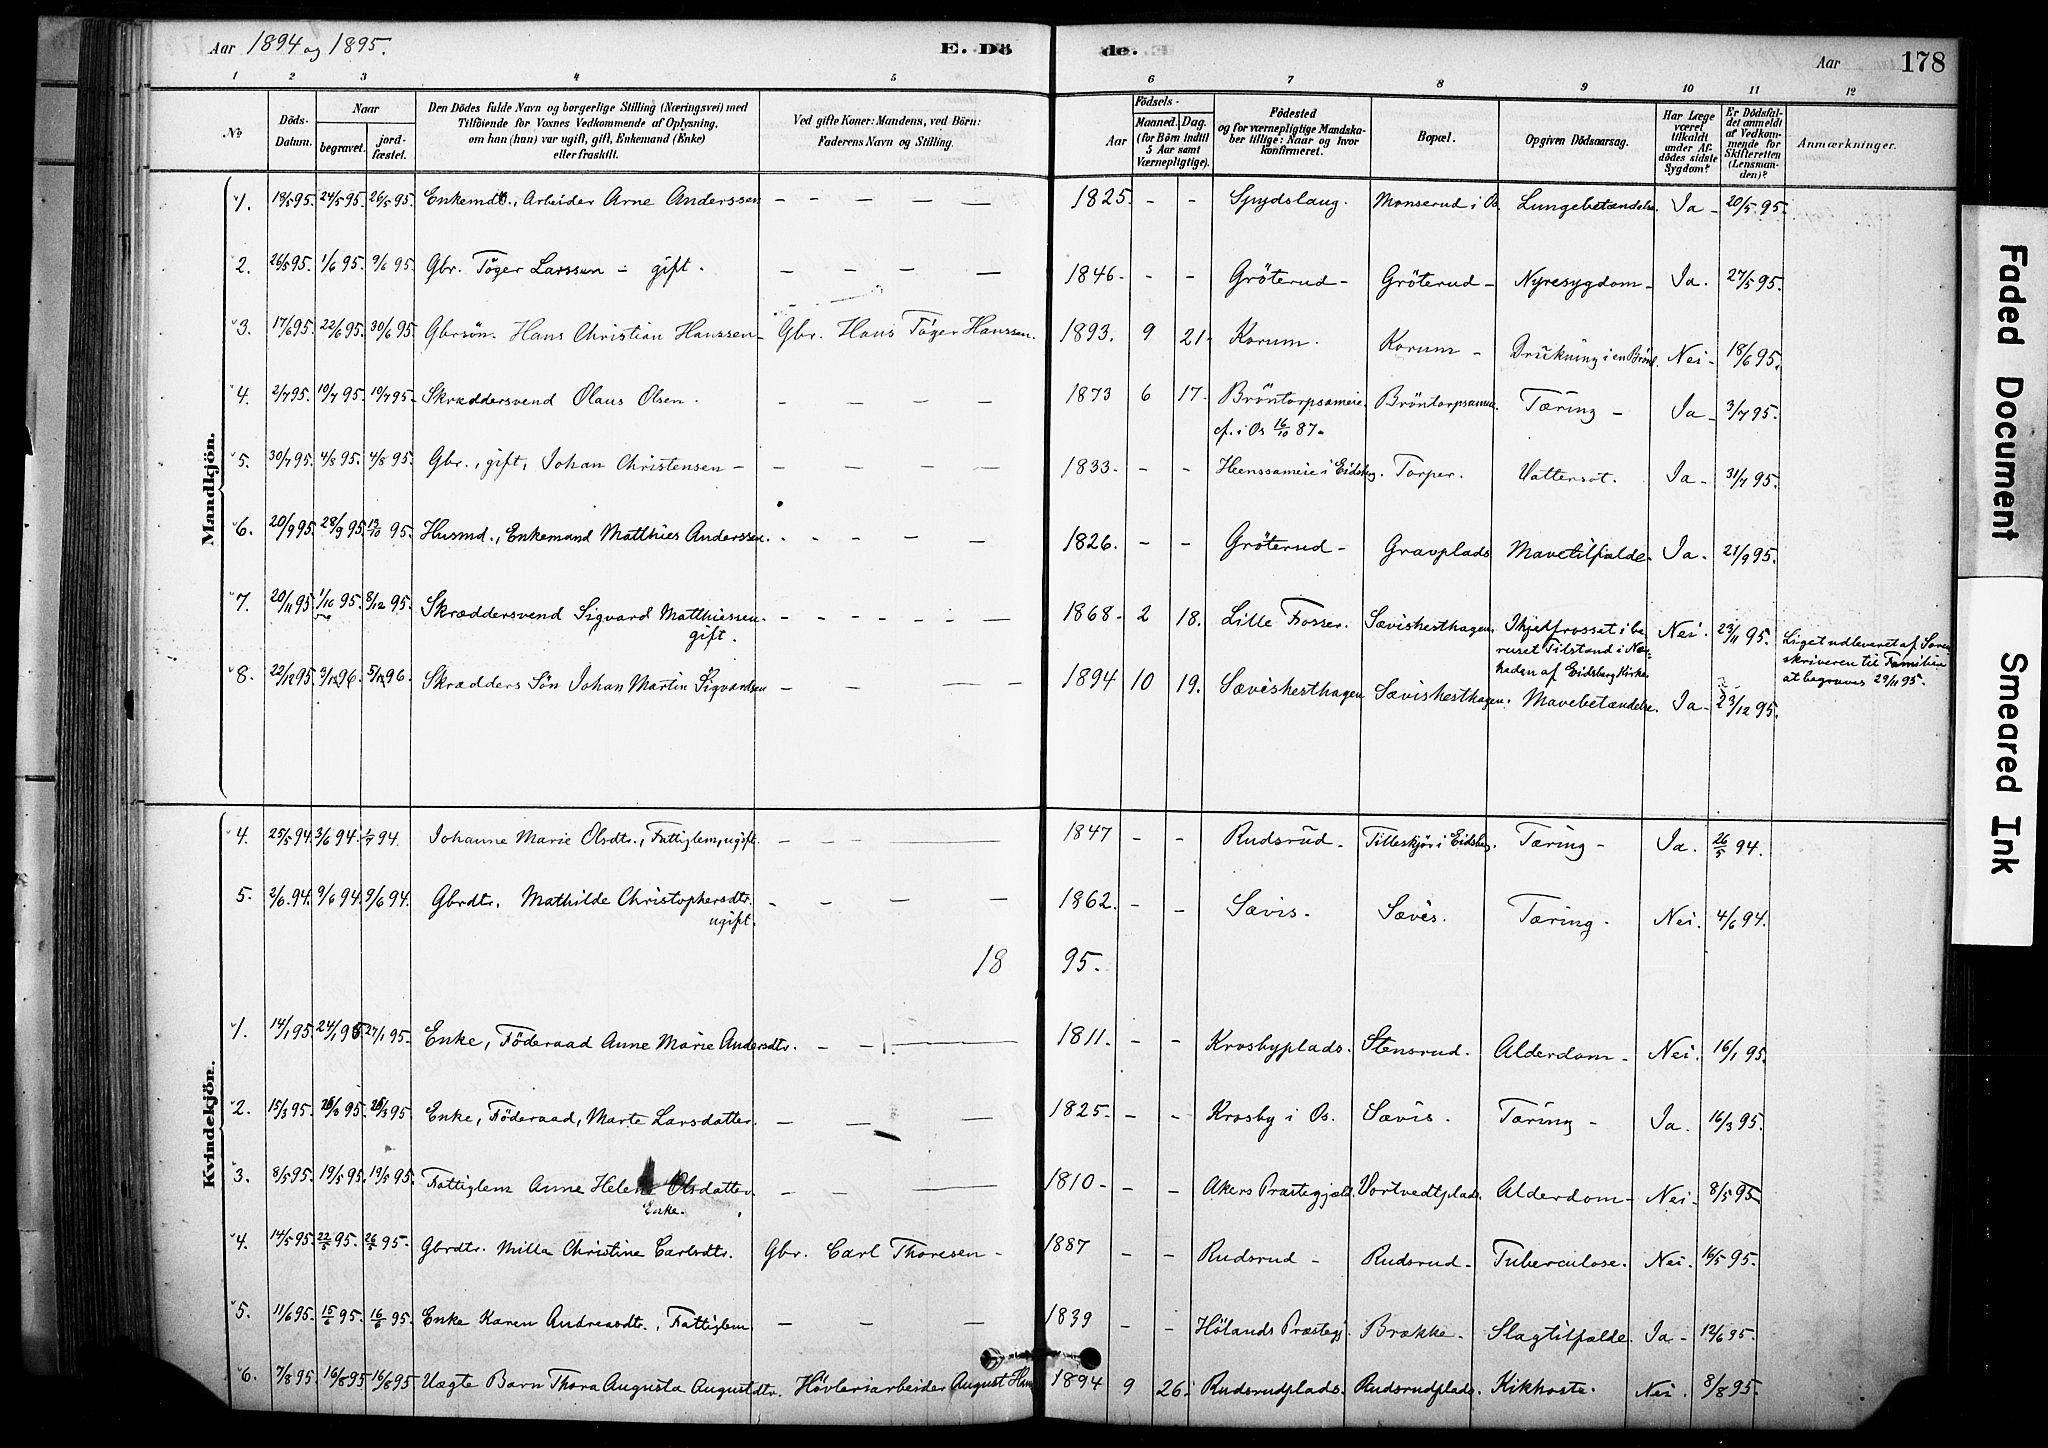 Aar 1894 og 1895.
E. Dö
de.
Aar 178
1 2 3 4 5 6 7 8 9 10 11 12
No
Döds-Datum.
Naar
begravet.
jord-fæstet.
Den Dödes fulde Navn og borgerlige Stilling (Næringsvei) med
Tilföiende for Voxnes Vedkommende af Oplysning,
om han (hun) var ugift, gift, Enkemand (Enke)
eller fraskilt.
Ved gifte Koner: Mandens, ved Börn:
Faderens Navn og Stilling.
Födsels-
Aar
Maaned. Dag.
(for Börn indtil
5 Aar samt
Værnepligtige).
Födested
og for værnepligtige Mandska-
ber tillige: Naar og hvor
konfirmeret.
Bopæl.
Opgiven Dödsaarsag.
Har Læge
været
tilkaldt
under Af-
dödes sidste
Sygdom?
Er Dödsfal-
det anmeldt
af Vedkom-
mende for
Skifteretten
(Lensman-
den)?
Anmærkninger.
Mandkjön.
1. 18/5 95. 24/5 95. 26/5 95. Enkemd., Arbeider Arne Anderssen — — — — — 1825. - - Spydslaug. Monserud i Os. Lungebetændelse. Ja - 20/5 95.
2. 26/5 95. 1/6 95. 9/6 95. Gbr. Töger Larssen - gift. — — — — 1846. - - Gröterud - Gröterud - Nyresygdom - Ja. 27/5 95.
3. 17/6 95. 22/6 95. 30/6 95. Gbrsön. Hans Christian Hanssen - Gbr. Hans Töger Hanssen. 1893. 9 21. Korum. Korum - Drukning i en Brönd. Nei - 18/6 95.
4. 2/7 95. 10/7 95. 10/7 95. Skræddersvend Olaus Olsen. — — — — 1873 6 17. Bröntorpsameie. Bröntorpsameie. Tæring - Ja - 3/7 95.
cf. i Os 16/10 87.
5. 30/7 95. 4/8 95. 4/8 95. Gbr., gift, Johan Christensen - — — — — 1833. - - Heenssameie i Eidsbg. Torper. Vattersot. Ja - 31/7 95.
6. 20/9 95. 28/9 95. 13/10 95. Husmd., Enkemand Matthies Anderssen. - - - — — 1826. - - Gröterud - Gravplads Mavetilfælde. Ja. 21/9 95.
7. 20/11 95. 1/10 95. 8/12 95. Skræddersvend Sigvard Matthiessen.
gift.
- - - - - - — 1868. 2 18. Lille Fosser. Sævishesthagen. Ihjelfrosset i be-
ruset Tilstand i Nær-
heden af Eidsberg Kirke.
Nei. 23/11 95. Liget udleveret af Soren-
skriveren til Familien
at begraves 29/11 95.
8. 22/12 95. 3/1 96. 5/1 96. Skrædders Sön Johan Martin Sigvardsen - — — — 1894 10 19. Sævishesthagen Sævishesthagen. Mavebetændelse. Ja - 23/12 95.
Kvindekjön.
4. 25/5 94. 3/6 94. 1/7 94. Johanne Marie Olsdtr., Fattiglem, ugift. — — — — 1847 - - Rudsrud. Tilleskjör i Eidsbg. Tæring - Ja. 26/5 94.
5. 2/6 94. 9/6 94. 9/6 94. Gbrdtr. Mathilde Christophersdtr.
ugift.
- — — — 1862. - - Sævis. Sævis. Tæring. Nei. 4/6 94.
1895.
1. 14/1 95. 24/1 95. 27/1 95. Enke, Föderaad Anne Marie Andersdtr. — — — 1811. - - Krosbyplads. Stensrud. Alderdom - Nei. 16/1 95.
2. 15/3 95. 26/3 95. 26/3 95. Enke, Föderaad, Marte Larsdatter. — — — 1825. - - Krosby i Os. Sævis. Tæring - Ja. 16/3 95.
3. 8/5 95. 19/5 95. 19/5 95. Fattiglem Anne Helene Olsdatter.
Enke.
— — — 1810. - - Akers Præstegjæld. Vortvedtplads. Alderdom - Nei - 8/5 95
4. 14/5 95. 22/5 95. 26/5 95. Gbrdtr. Milla Christine Carlsdtr. Gbr. Carl Thoresen - 1887 - - Rudsrud - Rudsrud - Tuberculose. Nei. 16/5 95.
5. 11/6 95. 15/6 95. 16/6 95. Enke Karen Andreasdtr., Fattiglem. — — — 1839 - - Hölands Præstegj. Brække. Slagtilfælde. Ja - 12/6 95.
6. 7/8 95. 16/8 95 16/8 95 Uægte Barn Thora Augusta Augustdtr. Hövleriarbeider August Hans 1894 9 26. Rudsrudplads. Rudsrudplads. Kikhoste. Nei. 8/8 95.
Faded Document
Smeared Ink